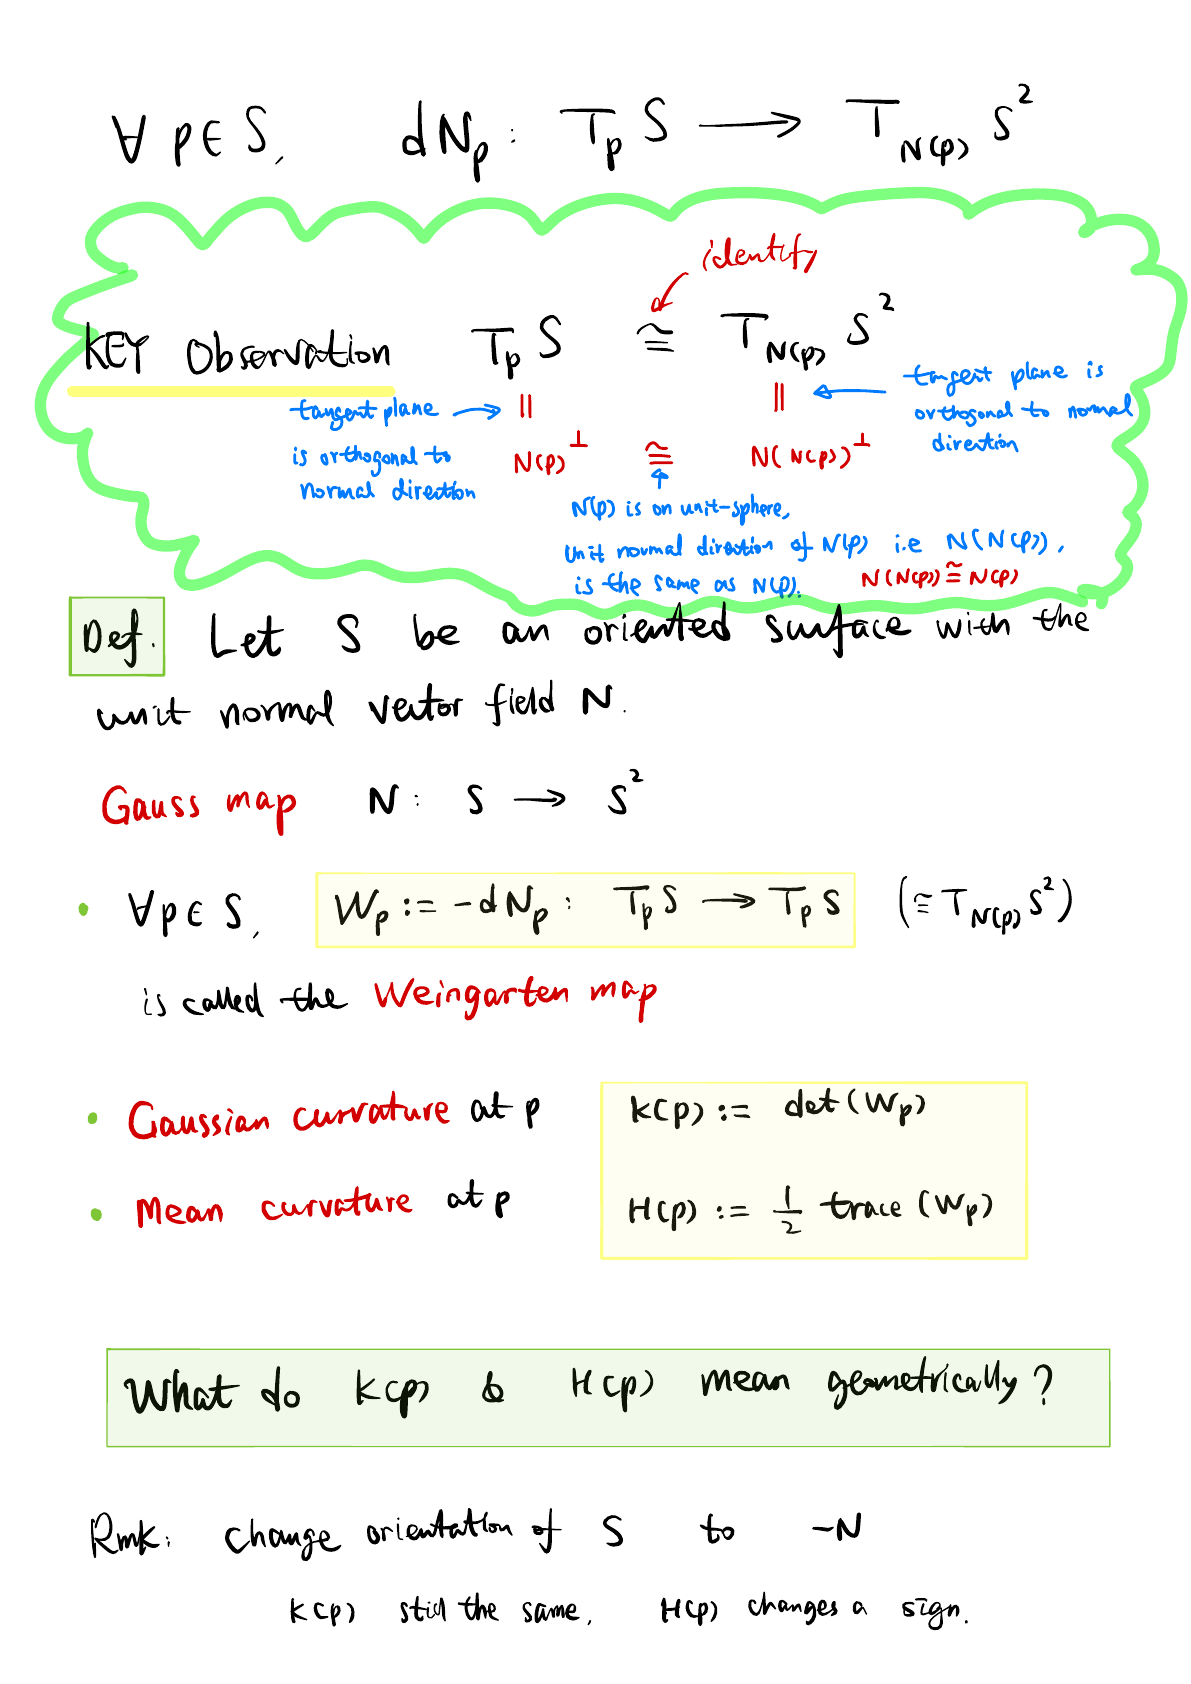 ∀ p ∈ S, dN_p : T_p S ⟶ T_{N(p)} S²
identify
KEY Observation T_p S ≅ T_{N(p)} S²
tangent plane → || || ← tangent plane is
is orthogonal to N(p)^⊥ ≅ N(N(p))^⊥ orthogonal to normal
normal direction direction
N(p) is on unit-sphere,
Unit normal direction of N(p) i.e N(N(p)),
is the same as N(p). N(N(p)) ≅ N(p)
Def. Let S be an oriented surface with the
unit normal vector field N.
Gauss map N : S ⟶ S²
• ∀p ∈ S, W_p := -dN_p : T_p S ⟶ T_p S (≅ T_{N(p)} S²)
is called the Weingarten map
• Gaussian curvature at p K(p) := det(W_p)
• Mean curvature at p H(p) := 1/2 trace (W_p)
What do K(p) & H(p) mean geometrically?
Rmk: change orientation of S to -N
K(p) still the same, H(p) changes a sign.